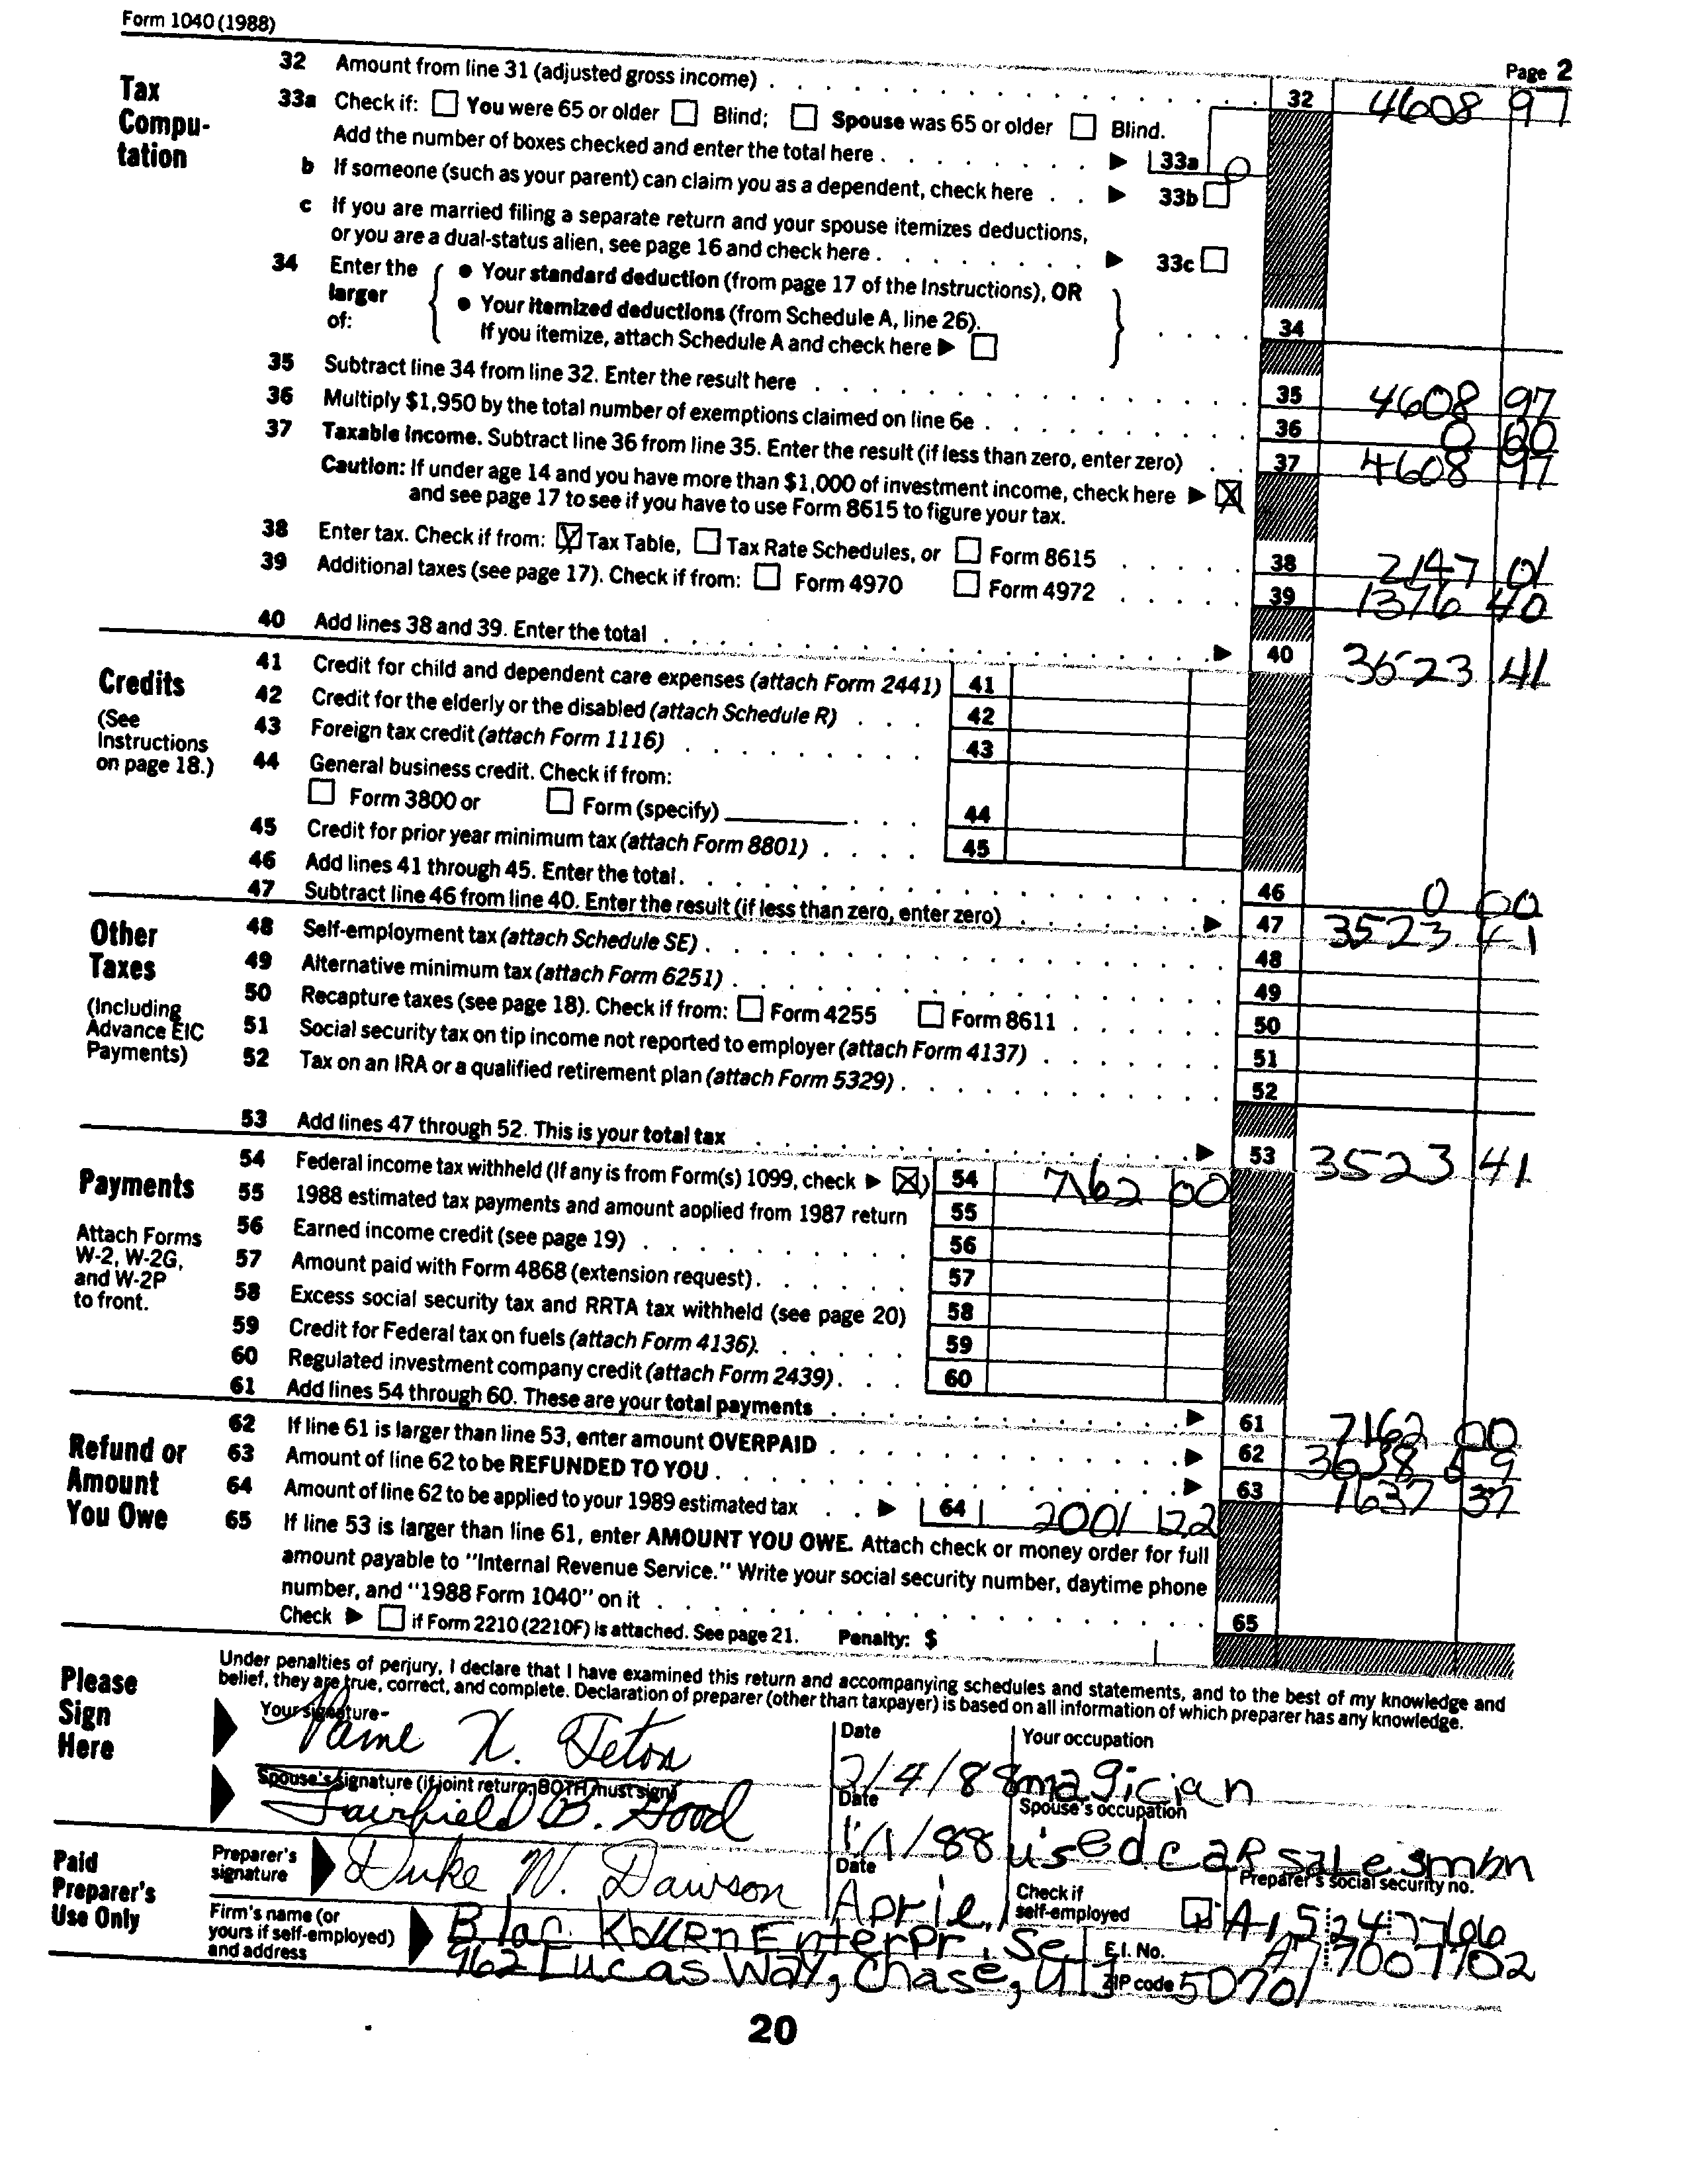 Form 1040 (1988)
Page 2
Tax Compu-tation
32 Amount from line 31 (adjusted gross income) 32 4608 97
33a Check if: You were 65 or older Blind; Spouse was 65 or older Blind.
Add the number of boxes checked and enter the total here 33a 0
b If someone (such as your parent) can claim you as a dependent, check here 33b
c If you are married filing a separate return and your spouse itemizes deductions,
or you are a dual-status alien, see page 16 and check here 33c
34 Enter the larger of: • Your standard deduction (from page 17 of the Instructions), OR
• Your itemized deductions (from Schedule A, line 26).
If you itemize, attach Schedule A and check here 34
35 Subtract line 34 from line 32. Enter the result here 35 4608 97
36 Multiply $1,950 by the total number of exemptions claimed on line 6e 36 0 00
37 Taxable income. Subtract line 36 from line 35. Enter the result (if less than zero, enter zero) 37 4608 97
Caution: If under age 14 and you have more than $1,000 of investment income, check here X
and see page 17 to see if you have to use Form 8615 to figure your tax.
38 Enter tax. Check if from: X Tax Table, Tax Rate Schedules, or Form 8615 38 2147 01
39 Additional taxes (see page 17). Check if from: Form 4970 Form 4972 39 1376 40
40 Add lines 38 and 39. Enter the total 40 3523 41
Credits
(See Instructions on page 18.)
41 Credit for child and dependent care expenses (attach Form 2441) 41
42 Credit for the elderly or the disabled (attach Schedule R) 42
43 Foreign tax credit (attach Form 1116) 43
44 General business credit. Check if from:
Form 3800 or Form (specify) 44
45 Credit for prior year minimum tax (attach Form 8801) 45
46 Add lines 41 through 45. Enter the total. 46 0 00
47 Subtract line 46 from line 40. Enter the result (if less than zero, enter zero) 47 3523 41
Other Taxes
(Including Advance EIC Payments)
48 Self-employment tax (attach Schedule SE) 48
49 Alternative minimum tax (attach Form 6251) 49
50 Recapture taxes (see page 18). Check if from: Form 4255 Form 8611 50
51 Social security tax on tip income not reported to employer (attach Form 4137) 51
52 Tax on an IRA or a qualified retirement plan (attach Form 5329) 52
53 Add lines 47 through 52. This is your total tax 53 3523 41
Payments
Attach Forms W-2, W-2G, and W-2P to front.
54 Federal income tax withheld (If any is from Form(s) 1099, check X) 54 7162 00
55 1988 estimated tax payments and amount applied from 1987 return 55
56 Earned income credit (see page 19) 56
57 Amount paid with Form 4868 (extension request) 57
58 Excess social security tax and RRTA tax withheld (see page 20) 58
59 Credit for Federal tax on fuels (attach Form 4136). 59
60 Regulated investment company credit (attach Form 2439) 60
61 Add lines 54 through 60. These are your total payments 61 7162 00
Refund or Amount You Owe
62 If line 61 is larger than line 53, enter amount OVERPAID 62 3638 59
63 Amount of line 62 to be REFUNDED TO YOU 63 1637 37
64 Amount of line 62 to be applied to your 1989 estimated tax 64 2001 22
65 If line 53 is larger than line 61, enter AMOUNT YOU OWE. Attach check or money order for full
amount payable to "Internal Revenue Service." Write your social security number, daytime phone
number, and "1988 Form 1040" on it 65
Check if Form 2210 (2210F) is attached. See page 21. Penalty: $
Please Sign Here
Under penalties of perjury, I declare that I have examined this return and accompanying schedules and statements, and to the best of my knowledge and
belief, they are true, correct, and complete. Declaration of preparer (other than taxpayer) is based on all information of which preparer has any knowledge.
Your signature Date Your occupation
X. Teton 2/4/88 magician
Spouse's signature (if joint return, BOTH must sign) Date Spouse's occupation
Fairfield B. Good 1/1/88 used car salesman
Paid Preparer's Use Only
Preparer's signature Date Check if self-employed Preparer's social security no.
Duke W. Dawson
Firm's name (or yours if self-employed) and address E.I. No. ZIP code
962 Lucas Way, Chase, 50701
20